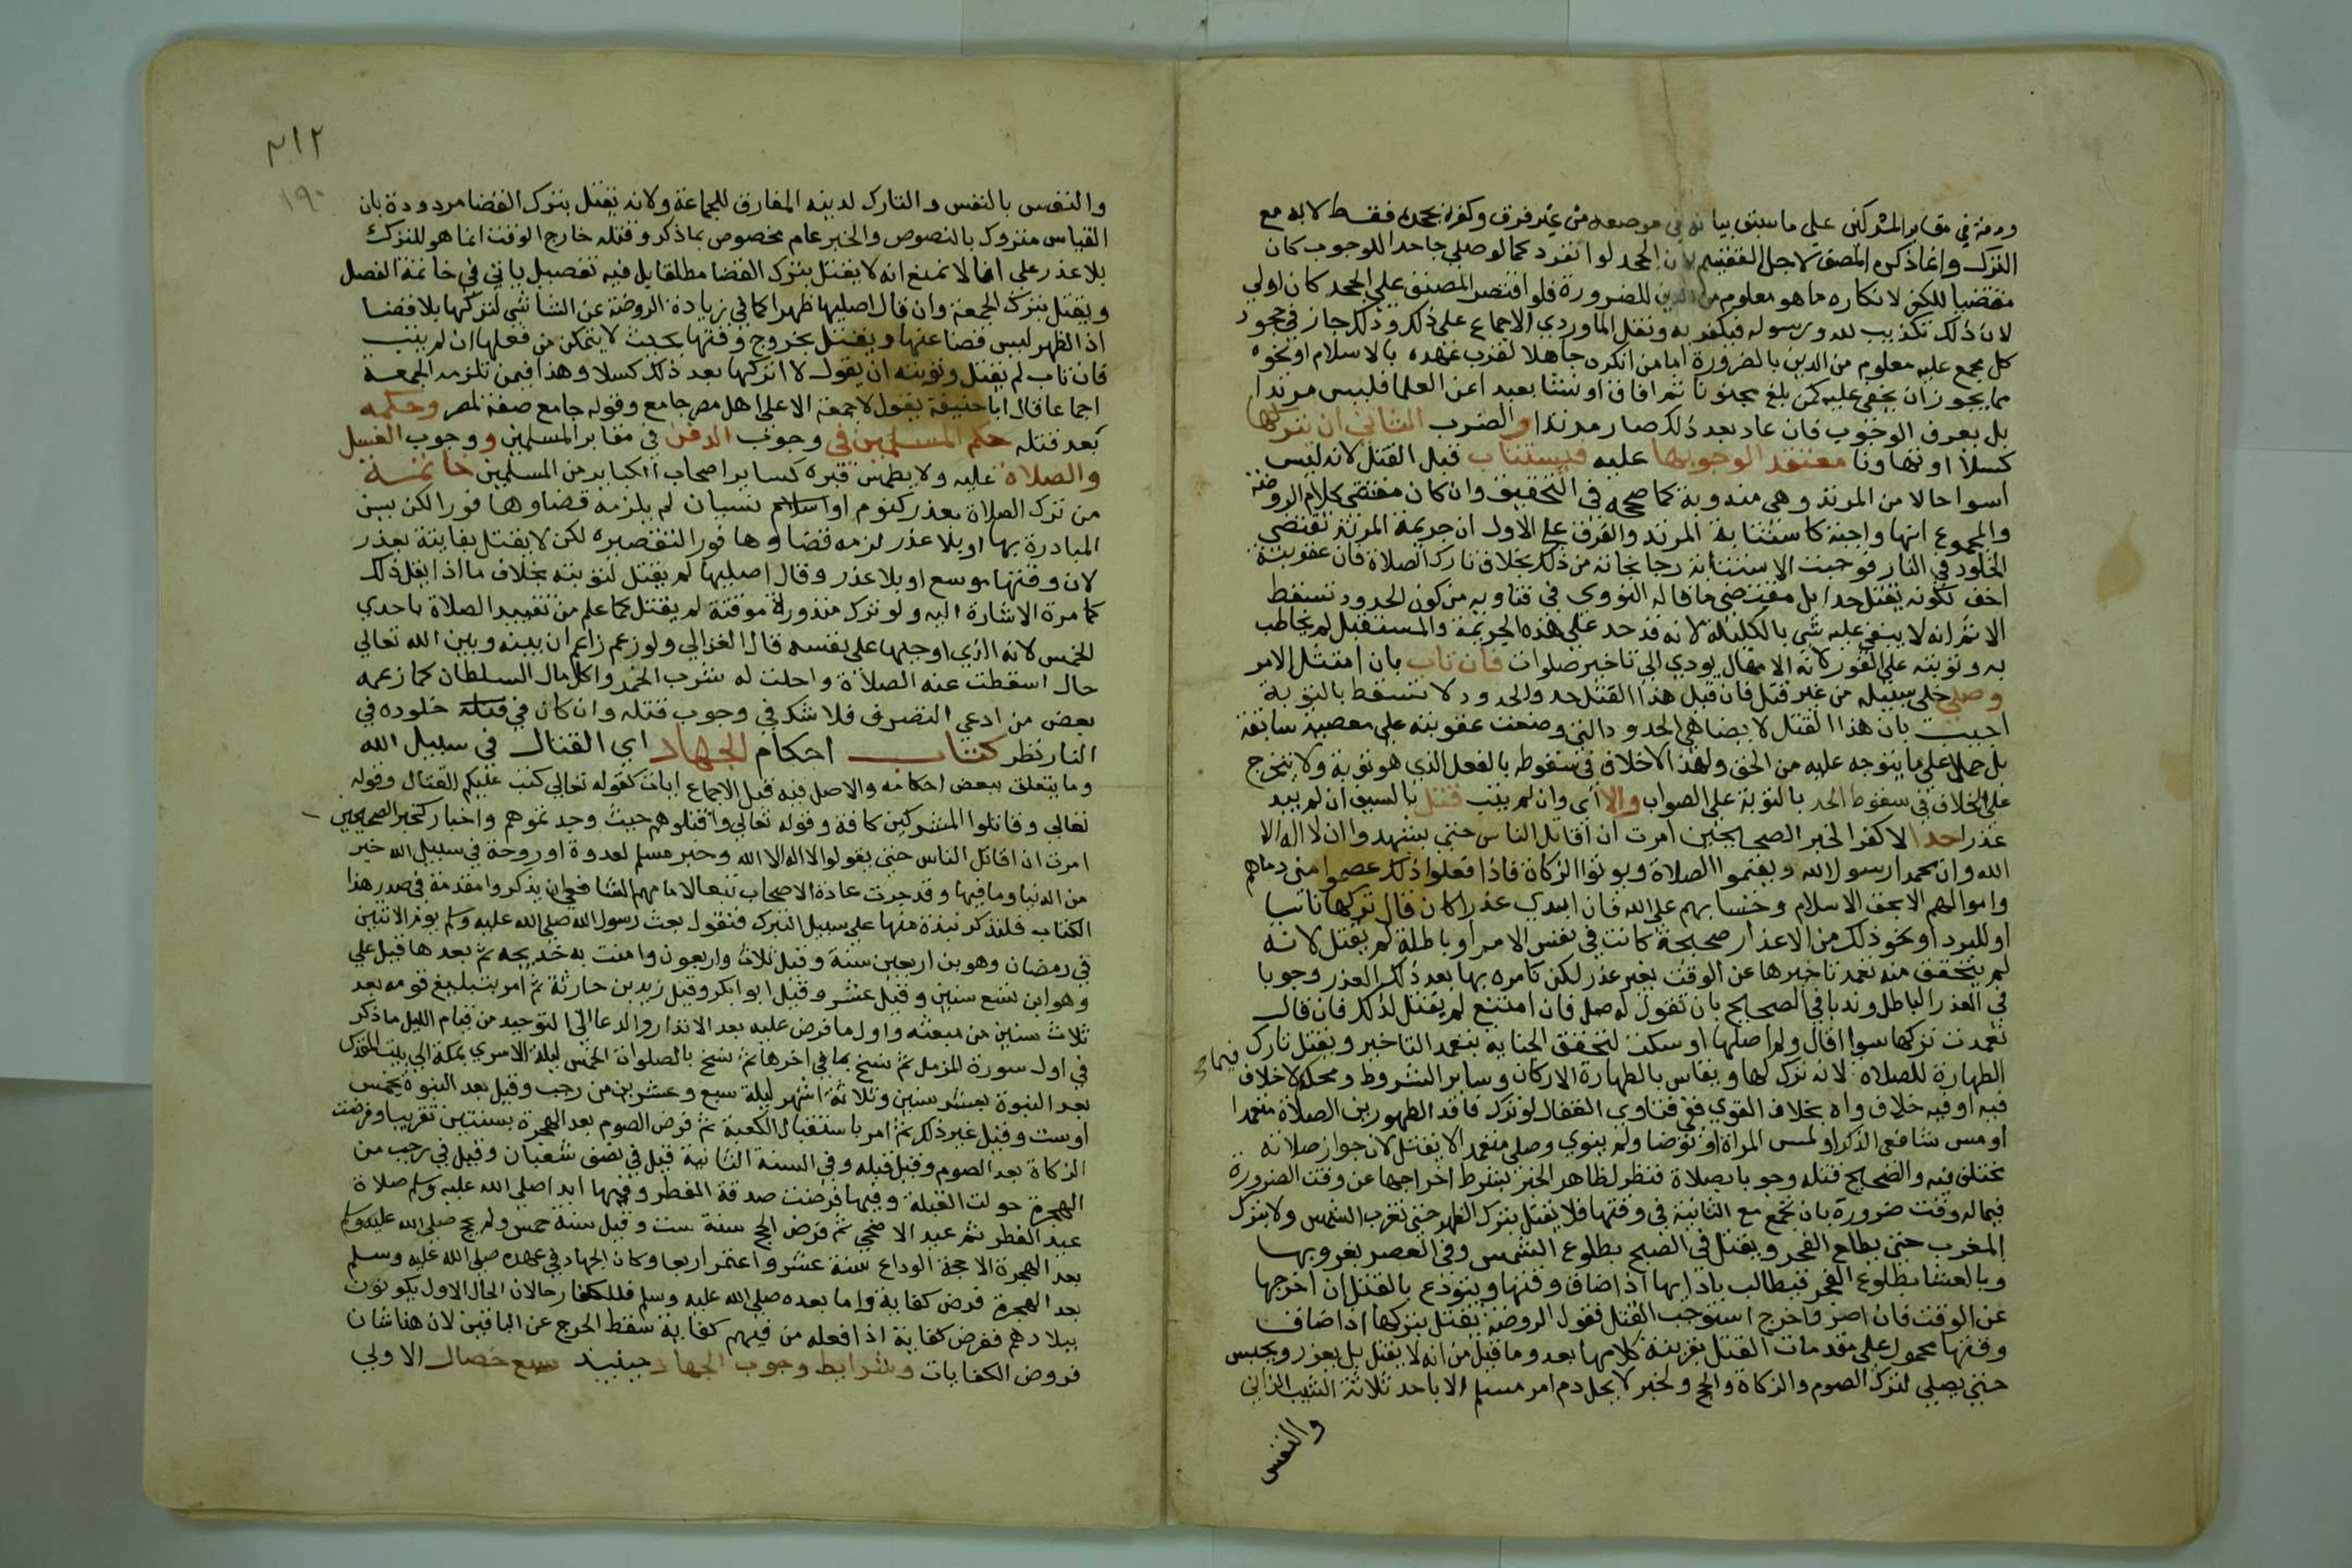 ودفنه في مقابر المشركين علي ما سبق بيانه في موضعه من غير فرق وكفره بجحده فقط لا به مع
الترك وانما ذكره المصنف لاجل التقسيم لان الجحد لو انفرد كما لو صلي جاحدا للوجوب كان
مقتضيا للكفر لانكاره ما هو معلوم من الدين للضرورة فلو اقتصر المصنف علي الجحد كان اولي
لان ذلك تكذيب لله ورسوله فيكفر به ونقل الماوردي الاجماع علي ذلك وذلك جاز في جحود
كل مجمع عليه معلوم من الدين بالضرورة اما من انكره جاهلا لقرب عهده بالاسلام او نحوه
مما يجوز ان يخفي عليه كمن بلغ مجنونا ثم افاق او نشا بعيدا عن العلما فليس مرتدا
بل يعرف الوجوب فان عاد بعد ذلك صار مرتدا والضرب الثاني ان يتركها
كسلا او تهاونا معتقدا لوجوبها عليه فيستتاب قبل القتل لانه ليس
اسوا حالا من المرتد وهي مندوبة كما صححه في التحقيق وان كان مقتضي كلام الروضة
والمجموع انها واجبة كاستتابة المرتد والفرق علي الاول ان جريمة المرتد تقتضي
الخلود في النار فوجبت الاستتابة رجا نجاته من ذلك بخلاف تارك الصلاة فان عقوبته
اخف لكونه يقتل حدا بل مقتضي ما قاله النووي في فتاويه من كون الحدود تسقط
الاثم انه لا يبقي عليه شي بالكلية لانه قد حد علي هذه الجريمة والمستقبل لم يخاطب
به وتوبته علي الفور لان الامهال يودي الي تاخير صلوات فان تاب بان امتثل الامر
وصلي خلي سبيله من غير قتل فان قيل هذا القتل حد والحدود لا تسقط بالتوبة
اجيب بان هذا القتل لا يضاهي الحدود التي وضعت عقوبته علي معصية سابقة
بل حملا علي ما يتوجه عليه من الحق ولهذا لا خلاف في سقوطه بالفعل الذي هو توبة ولا يتخرج
علي الخلاف في سقوط الحد بالتوبة علي الصواب والا اي وان لم يتب قتل بالسيف ان لم يبد
عذرا حدا لا كفرا لخبر الصحيحين امرت ان اقاتل الناس حتي يشهدوا ان لا اله الا
الله وان محمدا رسول الله ويقيموا الصلاة ويوتوا الزكاة فاذا فعلوا ذلك عصموا مني دماهم
واموالهم الا بحق الاسلام وحسابهم علي الله فان ابدي عذرا كان قال تركها ناسيا
او للبرد او نحو ذلك من الاعذار صحيحة كانت في نفس الامر او باطلة لم يقتل لانه
لم يتحقق منه تعمد تاخيرها عن الوقت بغير عذر لكن نامره بها بعد ذكر العذر وجوبا
في العذر الباطل وندبا في الصحيح بان نقول له صل فان امتنع لم يقتل لذلك فان قال
تعمدت تركها سوا اقال ولم اصلها او سكت لتحقق الجناية بتعمد التاخير ويقتل تارك
الطهارة للصلاة لانه ترك لها ويقاس بالطهارة الاركان وساير الشروط ومحله لا خلاف
فيه او فيه خلاف واه بخلاف القوي ففي فتاوي القفال لو ترك فاقد الطهورين الصلاة متعمدا
او مس شافعي الذكر او لمس المراة او توضا ولم ينوي وصلي متعمدا لا يقتل لان جواز صلاته
مختلف فيه والصحيح قتله وجوبا بصلاة فنظر لظاهر الخبر بشرط اخراجها عن وقت الضرورة
فيما له وقت ضرورة بان تجمع مع الثانية في وقتها فلا يقتل بترك الظهر حتي تغرب الشمس ولا بترك
المغرب حتي يطلع الفجر ويقتل في الصبح بطلوع الشمس وفي العصر بغروبها
وبالعشا بطلوع الفجر فيطالب بادايها اذا ضاق وقتها ويتوعد بالقتل ان اخرجها
عن الوقت فان اصر واخرج استوجب القتل فقول الروضة يقتل بتركها اذا ضاق
وقتها محمول علي مقدمات القتل بقرينة كلامها بعد وما قيل من انه لا يقتل بل يعزر ويحبس
حتي يصلي لترك الصوم والزكاة والحج ولخبر لا يحل دم امر مسلم الا باحد ثلاثة الثيب الزاني
والنفس
٢١٢
١٩٠
والنفس بالنفس والتارك لدينه المفارق للجماعة ولانه يقتل بترك القضا مردودة بان
القياس متروك بالنصوص والخبر عام مخصوص بما ذكر وقتله خارج الوقت انما هو للترك
بلا عذر علي انا لا نمنع انه لا يقتل بترك القضا مطلقا بل فيه تفصيل ياتي في خاتمة الفصل
ويقتل بترك الجمعة وان قال اصليها ظهرا كما في زيادة الروضة عن الشاشي لتركها بلا قضا
اذ الظهر ليس قضا عنها ويقتل بخروج وقتها بحيث لا يتمكن من فعلها ان لم يتب
فان تاب لم يقتل وتوبته ان يقول لا اتركها بعد ذلك كسلا وهذا فيمن تلزمه الجمعة
اجماعا فان ابا حنيفة يقول لا جمعة الا علي اهل مصر جامع وقوله جامع صفة لمصر وحكمه
بعد قتله حكم المسلمين في وجوب الدفن في مقابر المسلمين و وجوب الغسل
والصلاة عليه ولا يطمس قبره كساير اصحاب الكباير من المسلمين خاتمة
من ترك الصلاة بعذر كنوم او نسيان لم يلزمه قضاوها فورا لكن يسن
المبادرة بها او بلا عذر لزمه قضاوها فورا لتقصيره لكن لا يقتل بفايتة بعذر
لان وقتها موسع او بلا عذر وقال اصليها لم يقتل لتوبته بخلاف ما اذا يقل ذلك
كما مرة الاشارة اليه ولو ترك منذورة موقتة لم يقتل كما علم من تقييد الصلاة باحدي
الخمس لانه الذي اوجبها علي نفسه قال الغزالي ولو زعم زاعم ان بينه وبين الله تعالي
حال اسقطت عنه الصلاة واحلت له شرب الخمر واكل مال السلطان كما زعمه
بعض من ادعي التصوف فلا شك في وجوب قتله وان كان في خلوده في
النار نظر كتاب احكام الجهاد اي القتال في سبيل الله
وما يتعلق ببعض احكامه والاصل فيه قبل الاجماع ايات كقوله تعالي كتب عليكم القتال وقوله
تعالي وقاتلوا المشركين كافة وقوله تعالي واقتلوهم حيث وجدتموهم واخبار كخبر الصحيحين
امرت ان اقاتل الناس حتي يقولوا لا اله الا الله وخبر مسلم لغدوة او روحة في سبيل الله خير
من الدنيا وما فيها وقد جرت عادة الاصحاب تبعا لامامهم الشافعي ان يذكروا مقدمة في صدر هذا
الكتاب فلنذكر نبذة منها علي سبيل التبرك فنقول بعث رسول الله صلي الله عليه وسلم يوم الاثنين
في رمضان وهو بن اربعين سنة وقيل ثلاث واربعون وامنت به خديجه ثم بعدها قيل علي
وهو ابن تسع سنين وقيل عشر وقيل ابو ابكر وقيل زيد بن حارثة ثم امر بتبليغ قومه بعد
ثلاث سنين من مبعثه واول ما فرض عليه بعد الانذار والدعا الي التوحيد من قيام الليل ما ذكر
في اول سورة المزمل ثم نسخ بما في اخرها ثم نسخ بالصلوات الخمس ليلة الاسري بمكة الي بيت المقدس
بعد النبوة بعشر سنين وثلاثة اشهر ليلة سبع وعشرين من رجب وقيل بعد النبوة بخمس
اوست وقيل غير ذلك ثم امر باستقبال الكعبة ثم فرض الصوم بعد الهجرة بسنتين تقريبا وفرضت
الزكاة بعد الصوم وقيل قبله وفي السنة الثانية قيل في نصف شعبان وقيل في رجب من
الهجرة حولت القبلة وفيها فرضت صدقة الفطر وفيها ابدا صلي الله عليه وسلم صلاة
عيد الفطر ثم عيد الاضحي ثم فرض الحج سنة ست وقيل سنة خمس ولم يحج صلي الله عليه وسلم
بعد الهجرة الا حجة الوداع سنة عشر واعتمر اربعا وكان الجهاد في عهده صلي الله عليه وسلم
بعد الهجرة فرض كفاية واما بعده صلي الله عليه وسلم فللكفار حالان الحال الاول يكونون
ببلادهم ففرض كفاية اذا فعله من فيهم كفاية سقط الحرج عن الباقين لان هذا شان
فروض الكفايات وشرايط وجوب الجهاد حينيذ سبع خصال الاولي